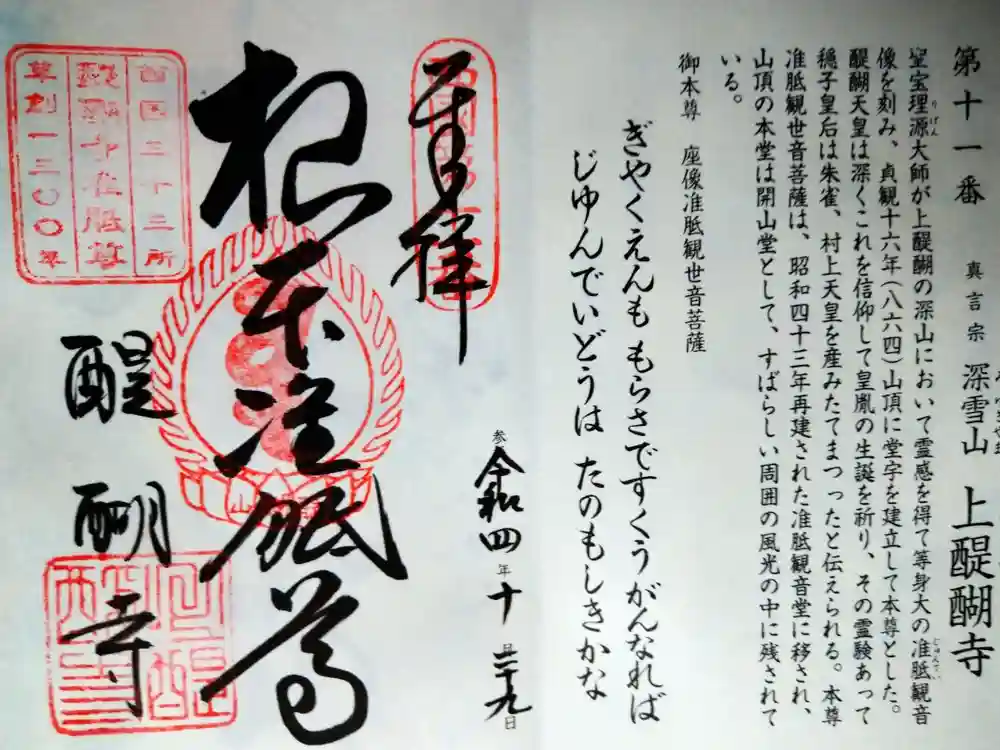 第十一番 真言宗 深雪山 上醍醐寺
聖宝理源大師が上醍醐の深山において霊感を得て等身大の准胝観音
像を刻み、貞観十六年(八六四)山頂に堂宇を建立して本尊とした。
醍醐天皇は深くこれを信仰して皇胤の生誕を祈り、その霊験あって
穏子皇后は朱雀、村上天皇を産みたてまつったと伝えられる。本尊
准胝観世音菩薩は、昭和四十三年再建された准胝観音堂に移され、
山頂の本堂は開山堂として、すばらしい周囲の風光の中に残されて
いる。
御本尊 座像准胝観世音菩薩
ぎやくえんも もらさですくうがんなれば
じゆんでいどうは たのもしきかな
参 令和四年十月二十九日
奉拝
根本准胝尊
醍醐寺
西国三十三所
醍醐寺准胝尊
草創一三〇〇年